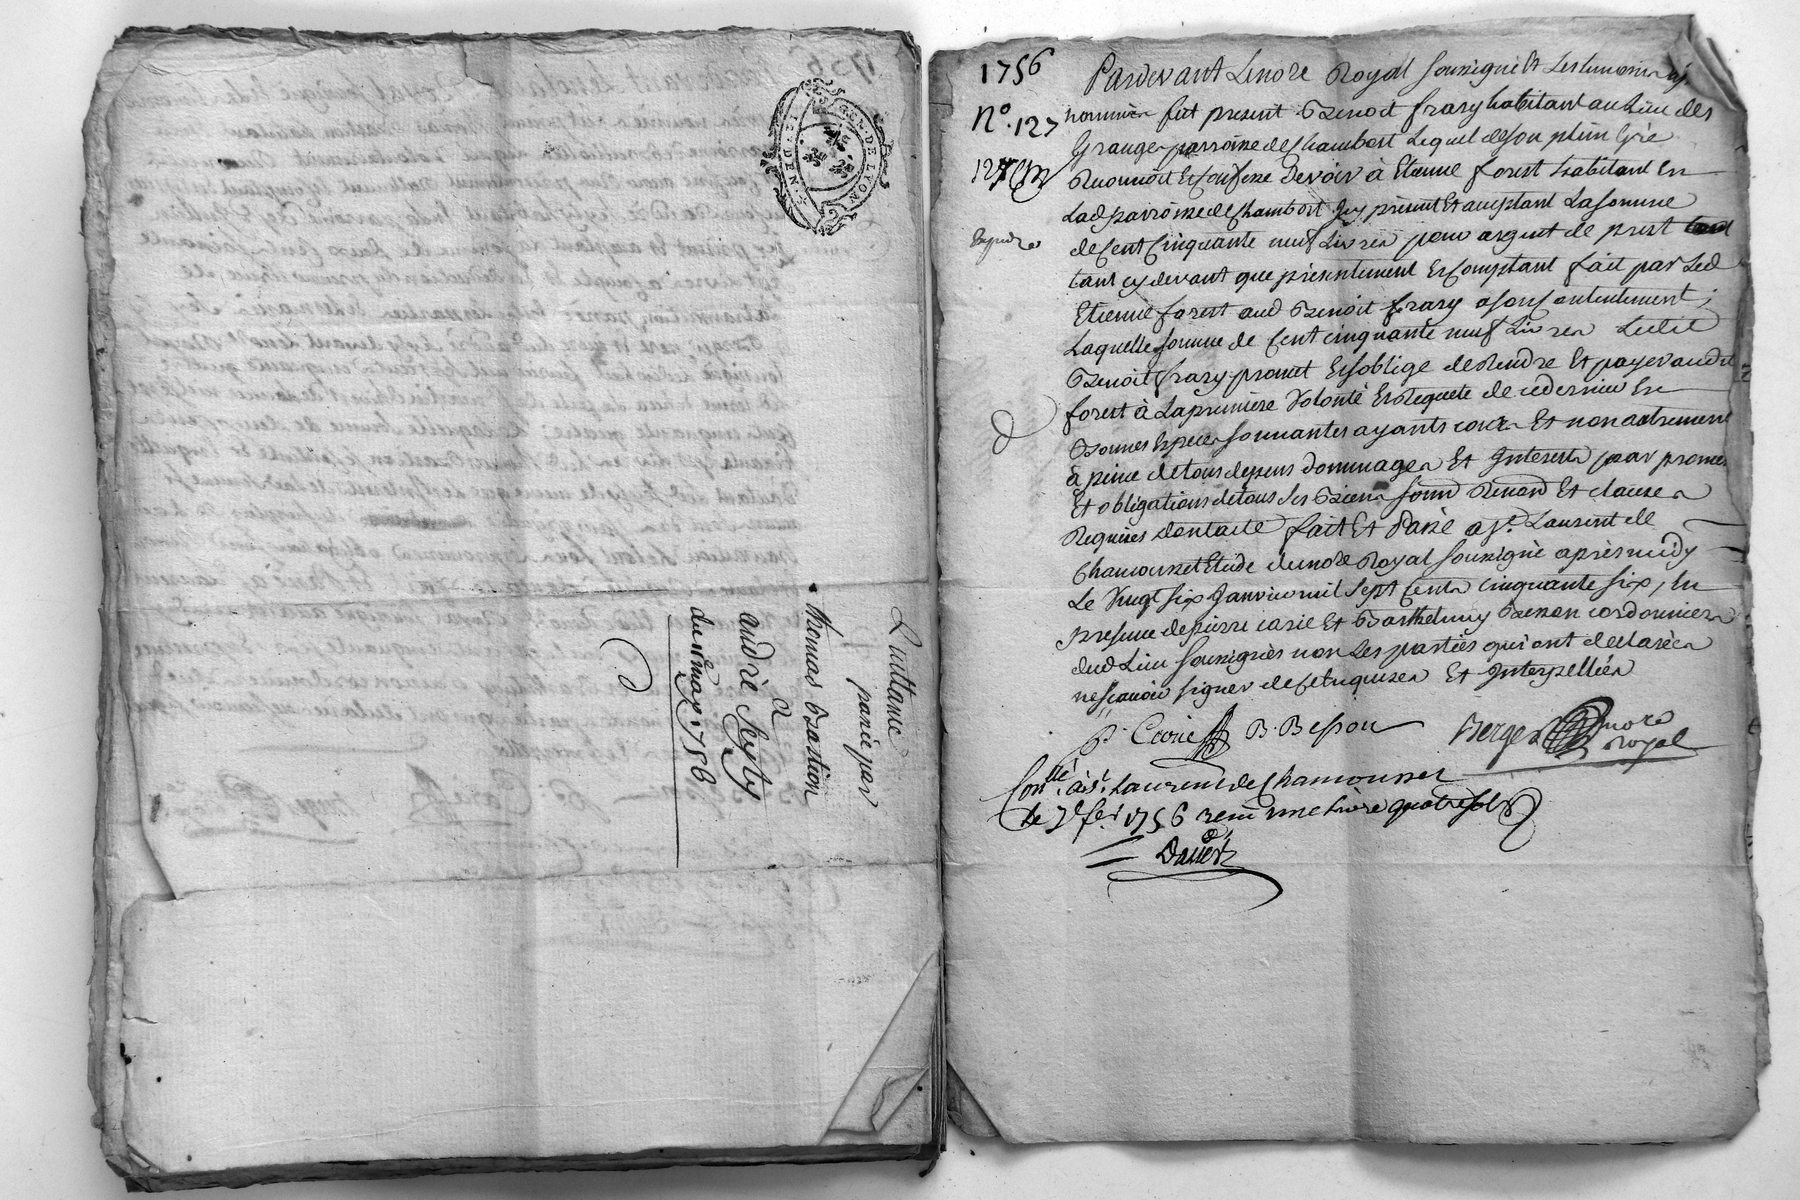 GEN. DE LYON
Quittance
passée par
Thomas Bastion
a
andré Seyty
du 1756
1756
N.º 127
Expediée
Pardevant Lenore Royal soussigné Et Les temoins
nommés fut present Benoit frary habitant au Lieu des
Granges parroisse de Chambost Lequel de son plein Gré
Reconnoit Et Confesse Devoir à Etienne forest habitant En
Lad parroisse de Chambost Icy present Et acceptant La somme
de Cent Cinquante neuf Livres pour argent de prest
tant cy devant que presentement Et Comptant fait par Led
Etienne forest aud Benoit frary a son Contentement ;
Laquelle somme de Cent cinquante neuf Livres Ledit
Benoit frary promet Et soblige de Rendre Et payer audit
forest à La premiere Volonté Et Requete de ce dernier En
Bonnes Especes sonnantes ayants cours Et non autrement
à peine de tous depens dommages Et Interests par promes
Et obligations de tous ses Biens soum Renon Et clauses
Requises dont acte fait Et Passé a St. Laurent de
Chamousset Etude du nore Royal soussigné après midy
Le Vingt six Janvier mil sept Cents cinquante six, En
presence de pierre carié Et Barthelemy Besson cordonniers
dud Lieu soussignés non Les parties qui ont declarées
ne sçavoir signer de Ce Enquises Et Interpellées
P. Carié B. Besson Berger nore
Royal
Conllé à St. Laurent de Chamousset
Le 7e fer 1756 reçu une Livre quatre sols